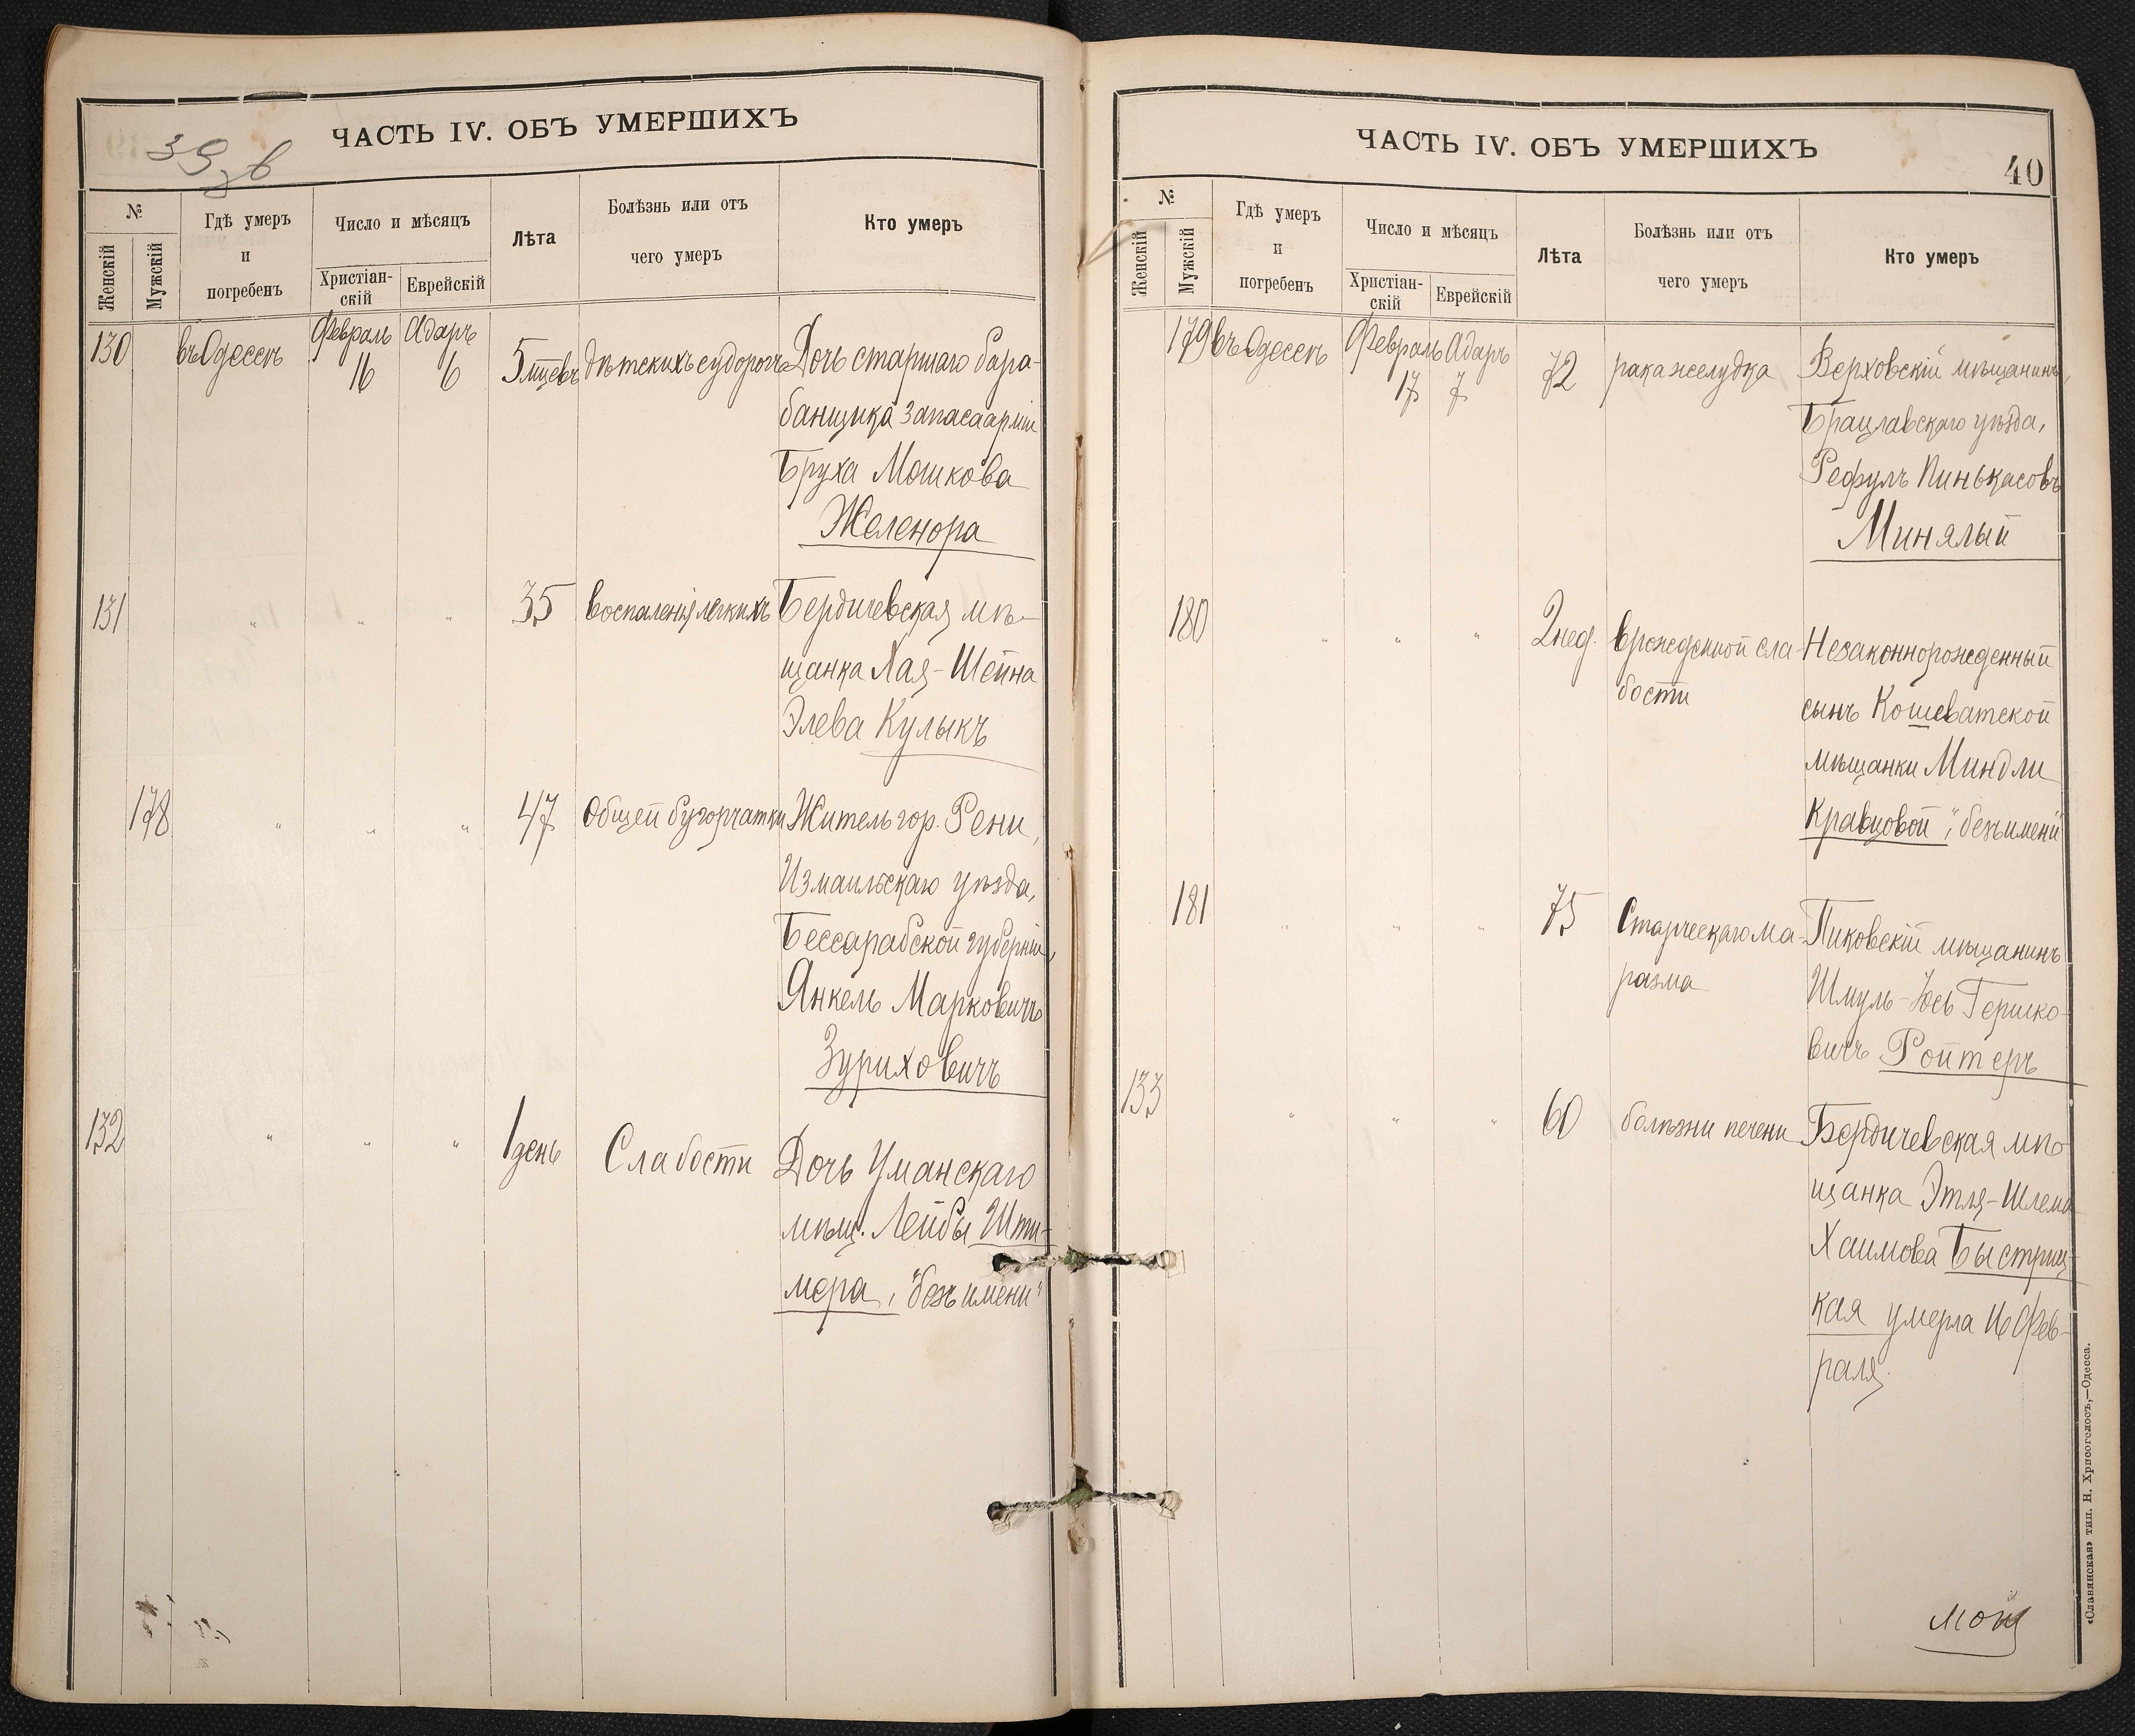 ЧАСТЬ IV. ОБЪ УМЕРШИХЪ
№
Женскій
Мужскій
Гдѣ умеръ
и
погребенъ
Число и мѣсяцъ
Христіан-
скій
Еврейскій
Лѣта
Болѣзнь или отъ
чего умеръ
Кто умеръ
130
въ Одессѣ
Февраль
16
Адаръ
6
5 мѣсецъ
дѣтскихъ судорогъ
Дочь старшаго бара-
банщика запаса арміи
Бруха Мошкова
Желенора
131
" " "
35
воспаленія легкихъ
Бердичевская мѣ-
щанка Хая-Шейна
Элева Кулыкъ
178
" " "
47
Общей бугорчатки
Житель гор. Рени,
Измаильскаго уѣзда,
Бессарабской губерніи,
Янкель Марковичъ
Зуриховичъ
132
" " "
1 день
Слабости
Дочь Уманскаго
мѣщ. Лейбы Шти-
мера, "безъ имени"
ЧАСТЬ IV. ОБЪ УМЕРШИХЪ
40
№
Женскій
Мужскій
Гдѣ умеръ
и
погребенъ
Число и мѣсяцъ
Христіан-
скій
Еврейскій
Лѣта
Болѣзнь или отъ
чего умеръ
Кто умеръ
179
въ Одессѣ
Февраль
17
Адаръ
7
72
рака желудка
Верховскій мѣщанинъ,
Брацлавскаго уѣзда,
Рефулъ Пинькасовъ
Минялый
180
" " "
2 нед.
врожденной сла-
бости
Незаконнорожденный
сынъ Кошеватской
мѣщанки Миндли
Кравцовой, "безъ имени"
181
" " "
75
Старческаго ма-
разма
Пиковскій мѣщанинъ
Шмуль-Іось Гершко-
вичъ Ройтеръ
133
" " "
60
болѣзни печени
Бердичевская мѣ
щанка Этля-Шлема
Хаимова Быстриц-
кая умерла 16 Фев-
раля.
«Славянская» тип. Н. Хрисогелосъ,—Одесса.